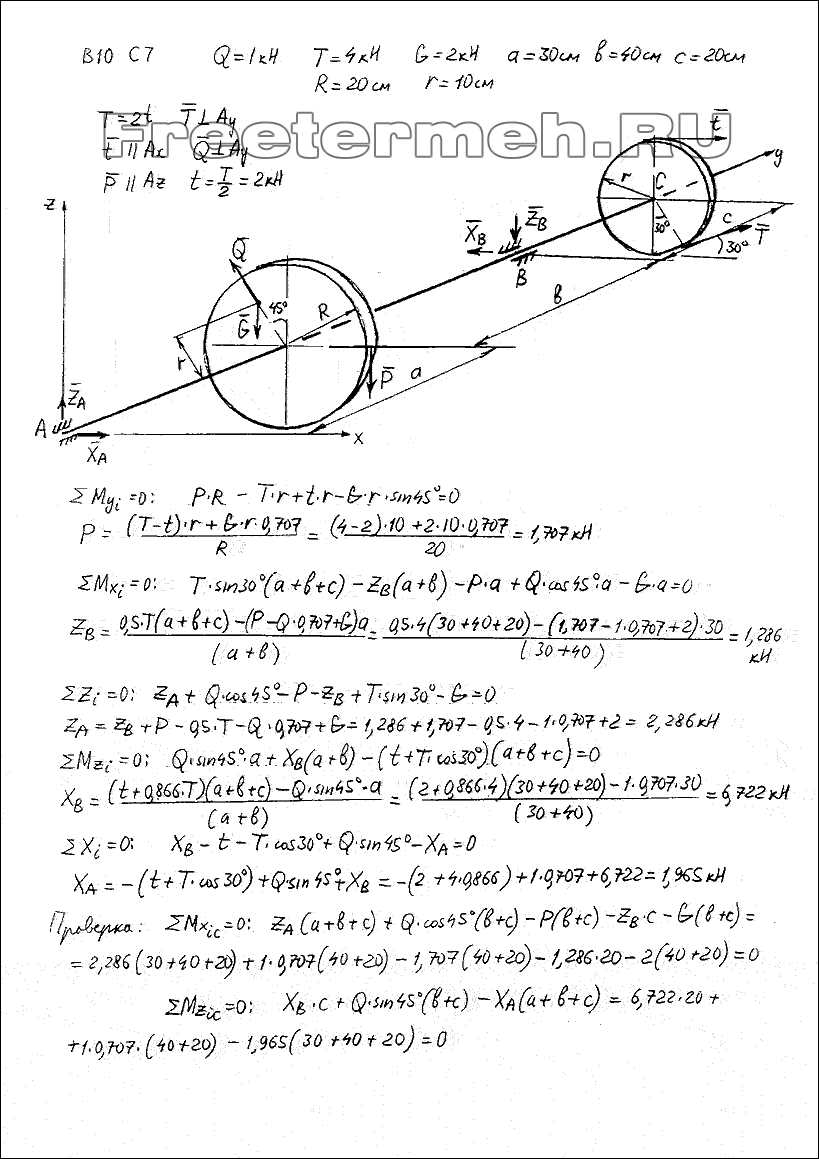 В10 С7 Q=1кН T=4кН G=2кН a=30см в=40см c=20см
R=20см r=10см
T=2t T̅⊥Ay
t̅ || Ax Q̅⊥Ay
P̅ || Az t=T/2=2кН
Freetermeh.RU
t̅
y
z
r
C
c
30°
T̅
30°
X̅B
Z̅B
B
в
Q̅
45°
R
G̅
r
P̅
a
Z̅A
A
X̅A
x
ΣMyi=0: P·R − T·r + t·r − G·r·sin45°=0
P = ((T−t)·r + G·r·0,707)/R = ((4−2)·10 + 2·10·0,707)/20 = 1,707 кН
ΣMxi=0: T·sin30°(a+в+c) − ZB(a+в) − P·a + Q·cos45°·a − G·a=0
ZB = (0,5·T(a+в+c) − (P−Q·0,707+G)a)/(a+в) = (0,5·4(30+40+20) − (1,707−1·0,707+2)·30)/(30+40) = 1,286 кН
ΣZi=0: ZA + Q·cos45° − P − ZB + T·sin30° − G=0
ZA = ZB + P − 0,5·T − Q·0,707 + G = 1,286 + 1,707 − 0,5·4 − 1·0,707 + 2 = 2,286 кН
ΣMzi=0: Q·sin45°·a + XB(a+в) − (t+T·cos30°)(a+в+c)=0
XB = ((t+0,866·T)(a+в+c) − Q·sin45°·a)/(a+в) = ((2+0,866·4)(30+40+20) − 1·0,707·30)/(30+40) = 6,722 кН
ΣXi=0: XB − t − T·cos30° + Q·sin45° − XA=0
XA = −(t+T·cos30°) + Q·sin45° + XB = −(2+4·0,866) + 1·0,707 + 6,722 = 1,965 кН
Проверка: ΣMxic=0: ZA(a+в+c) + Q·cos45°(в+c) − P(в+c) − ZB·c − G(в+c) =
= 2,286(30+40+20) + 1·0,707(40+20) − 1,707(40+20) − 1,286·20 − 2(40+20) = 0
ΣMzic=0: XB·c + Q·sin45°(в+c) − XA(a+в+c) = 6,722·20 +
+1·0,707·(40+20) − 1,965(30+40+20) = 0